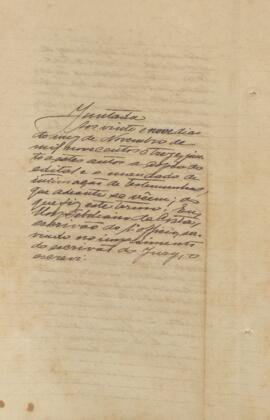 Juntada
Aos vinte e nove dias
do mez de Novembro de
mil novecentos e treze, jun
to a estes autos a copia do
edital e o mandado de
intimação de testemunhas
que adiante se vêem; do
que fiz este termo. Eu,
de Costa,
escrivão do 1º officio, ser
vindo no impedimento
do escrivão do Jury, o
escrevi.